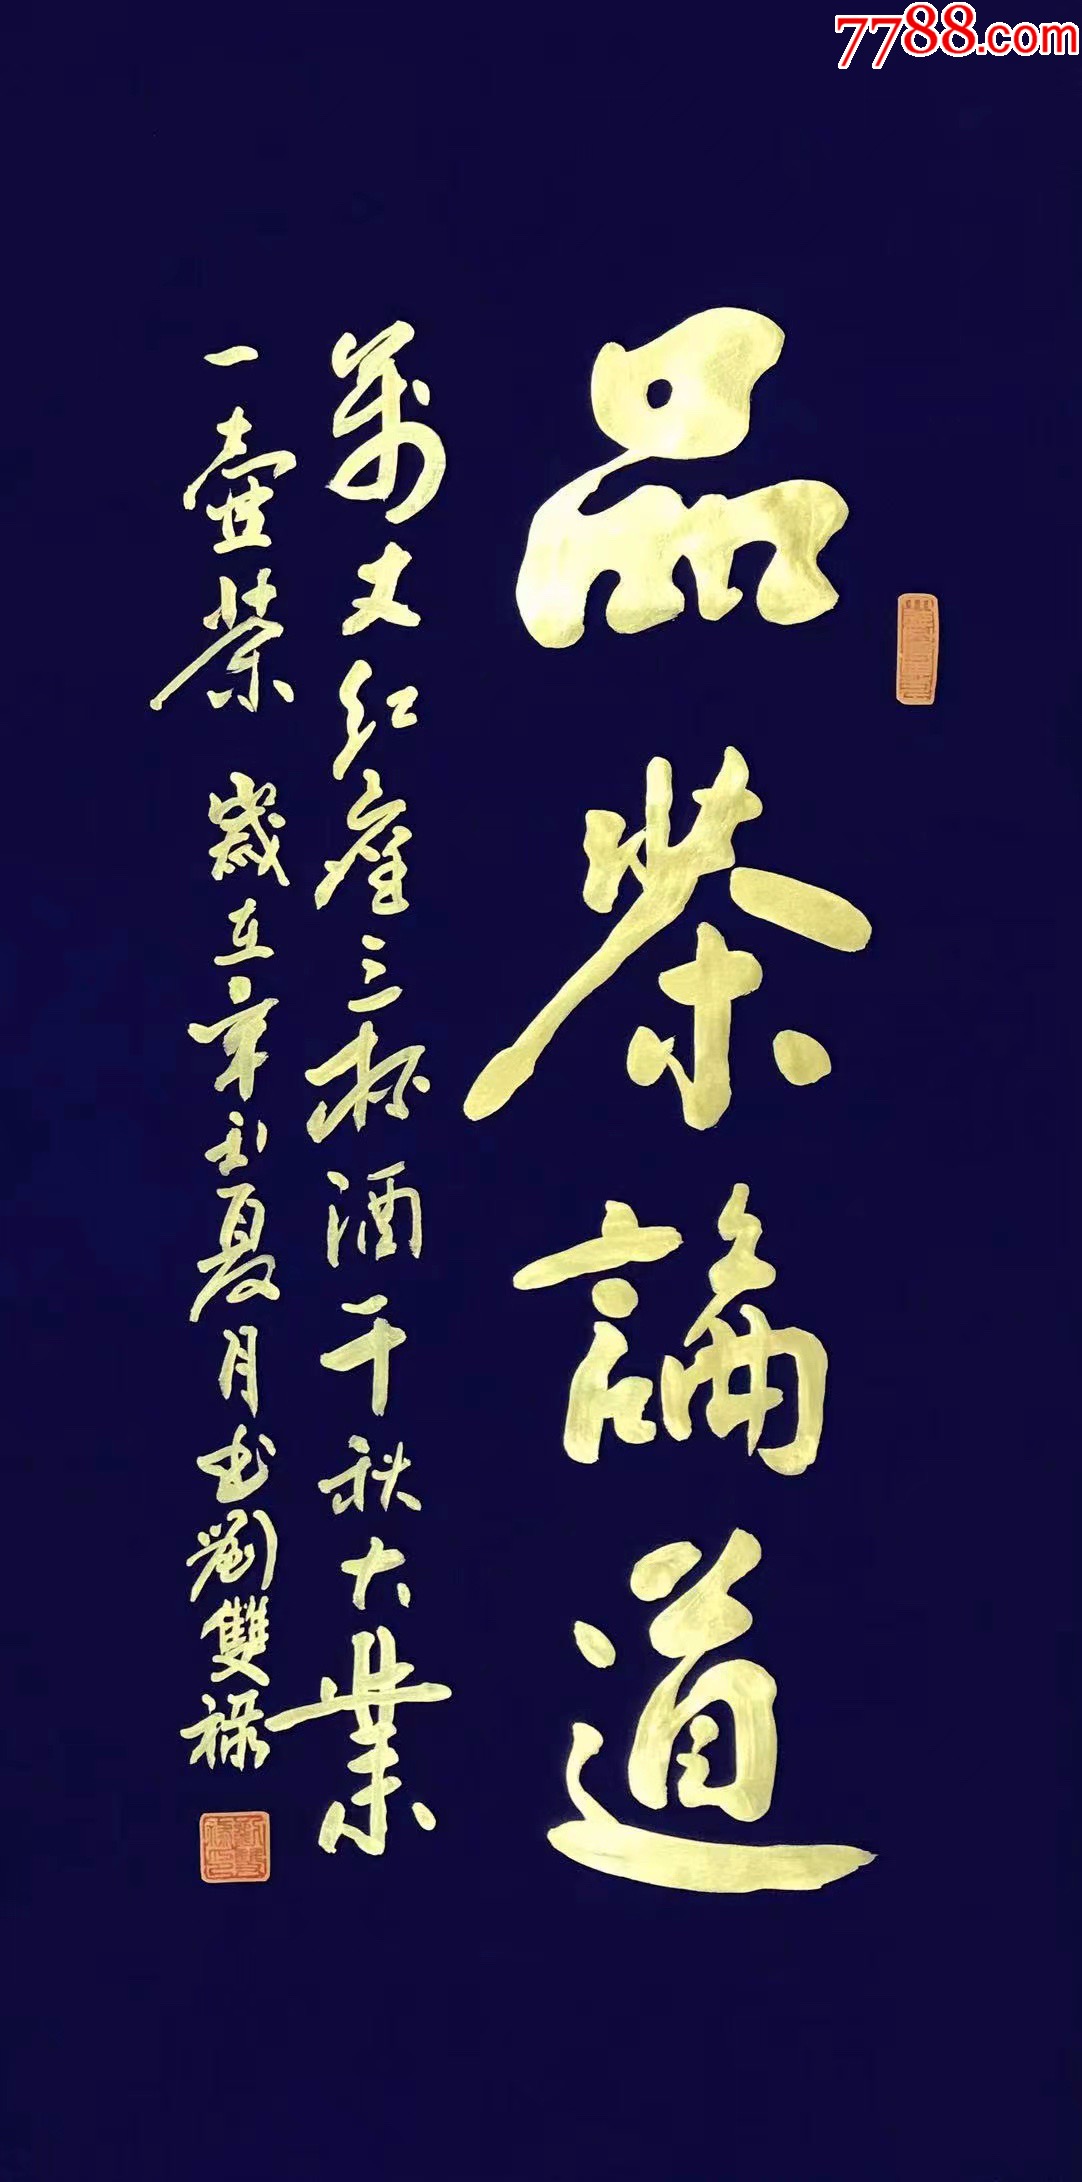 7788.com
品茶論道
萬丈紅塵三杯酒千秋大業
一壺茶 歲在辛丑夏月書劉雙禄